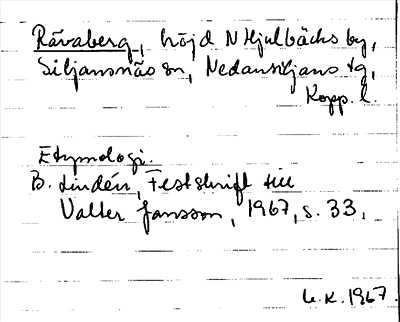 Råvaberg, höjd N Hjulbäcks by,
Siljansnäs sn, Nedansiljans tg,
Kopp. l.
Etymologi.
B. Lindén, Festskrift till
Valter Jansson, 1967, s. 33.
L.K. 1967.